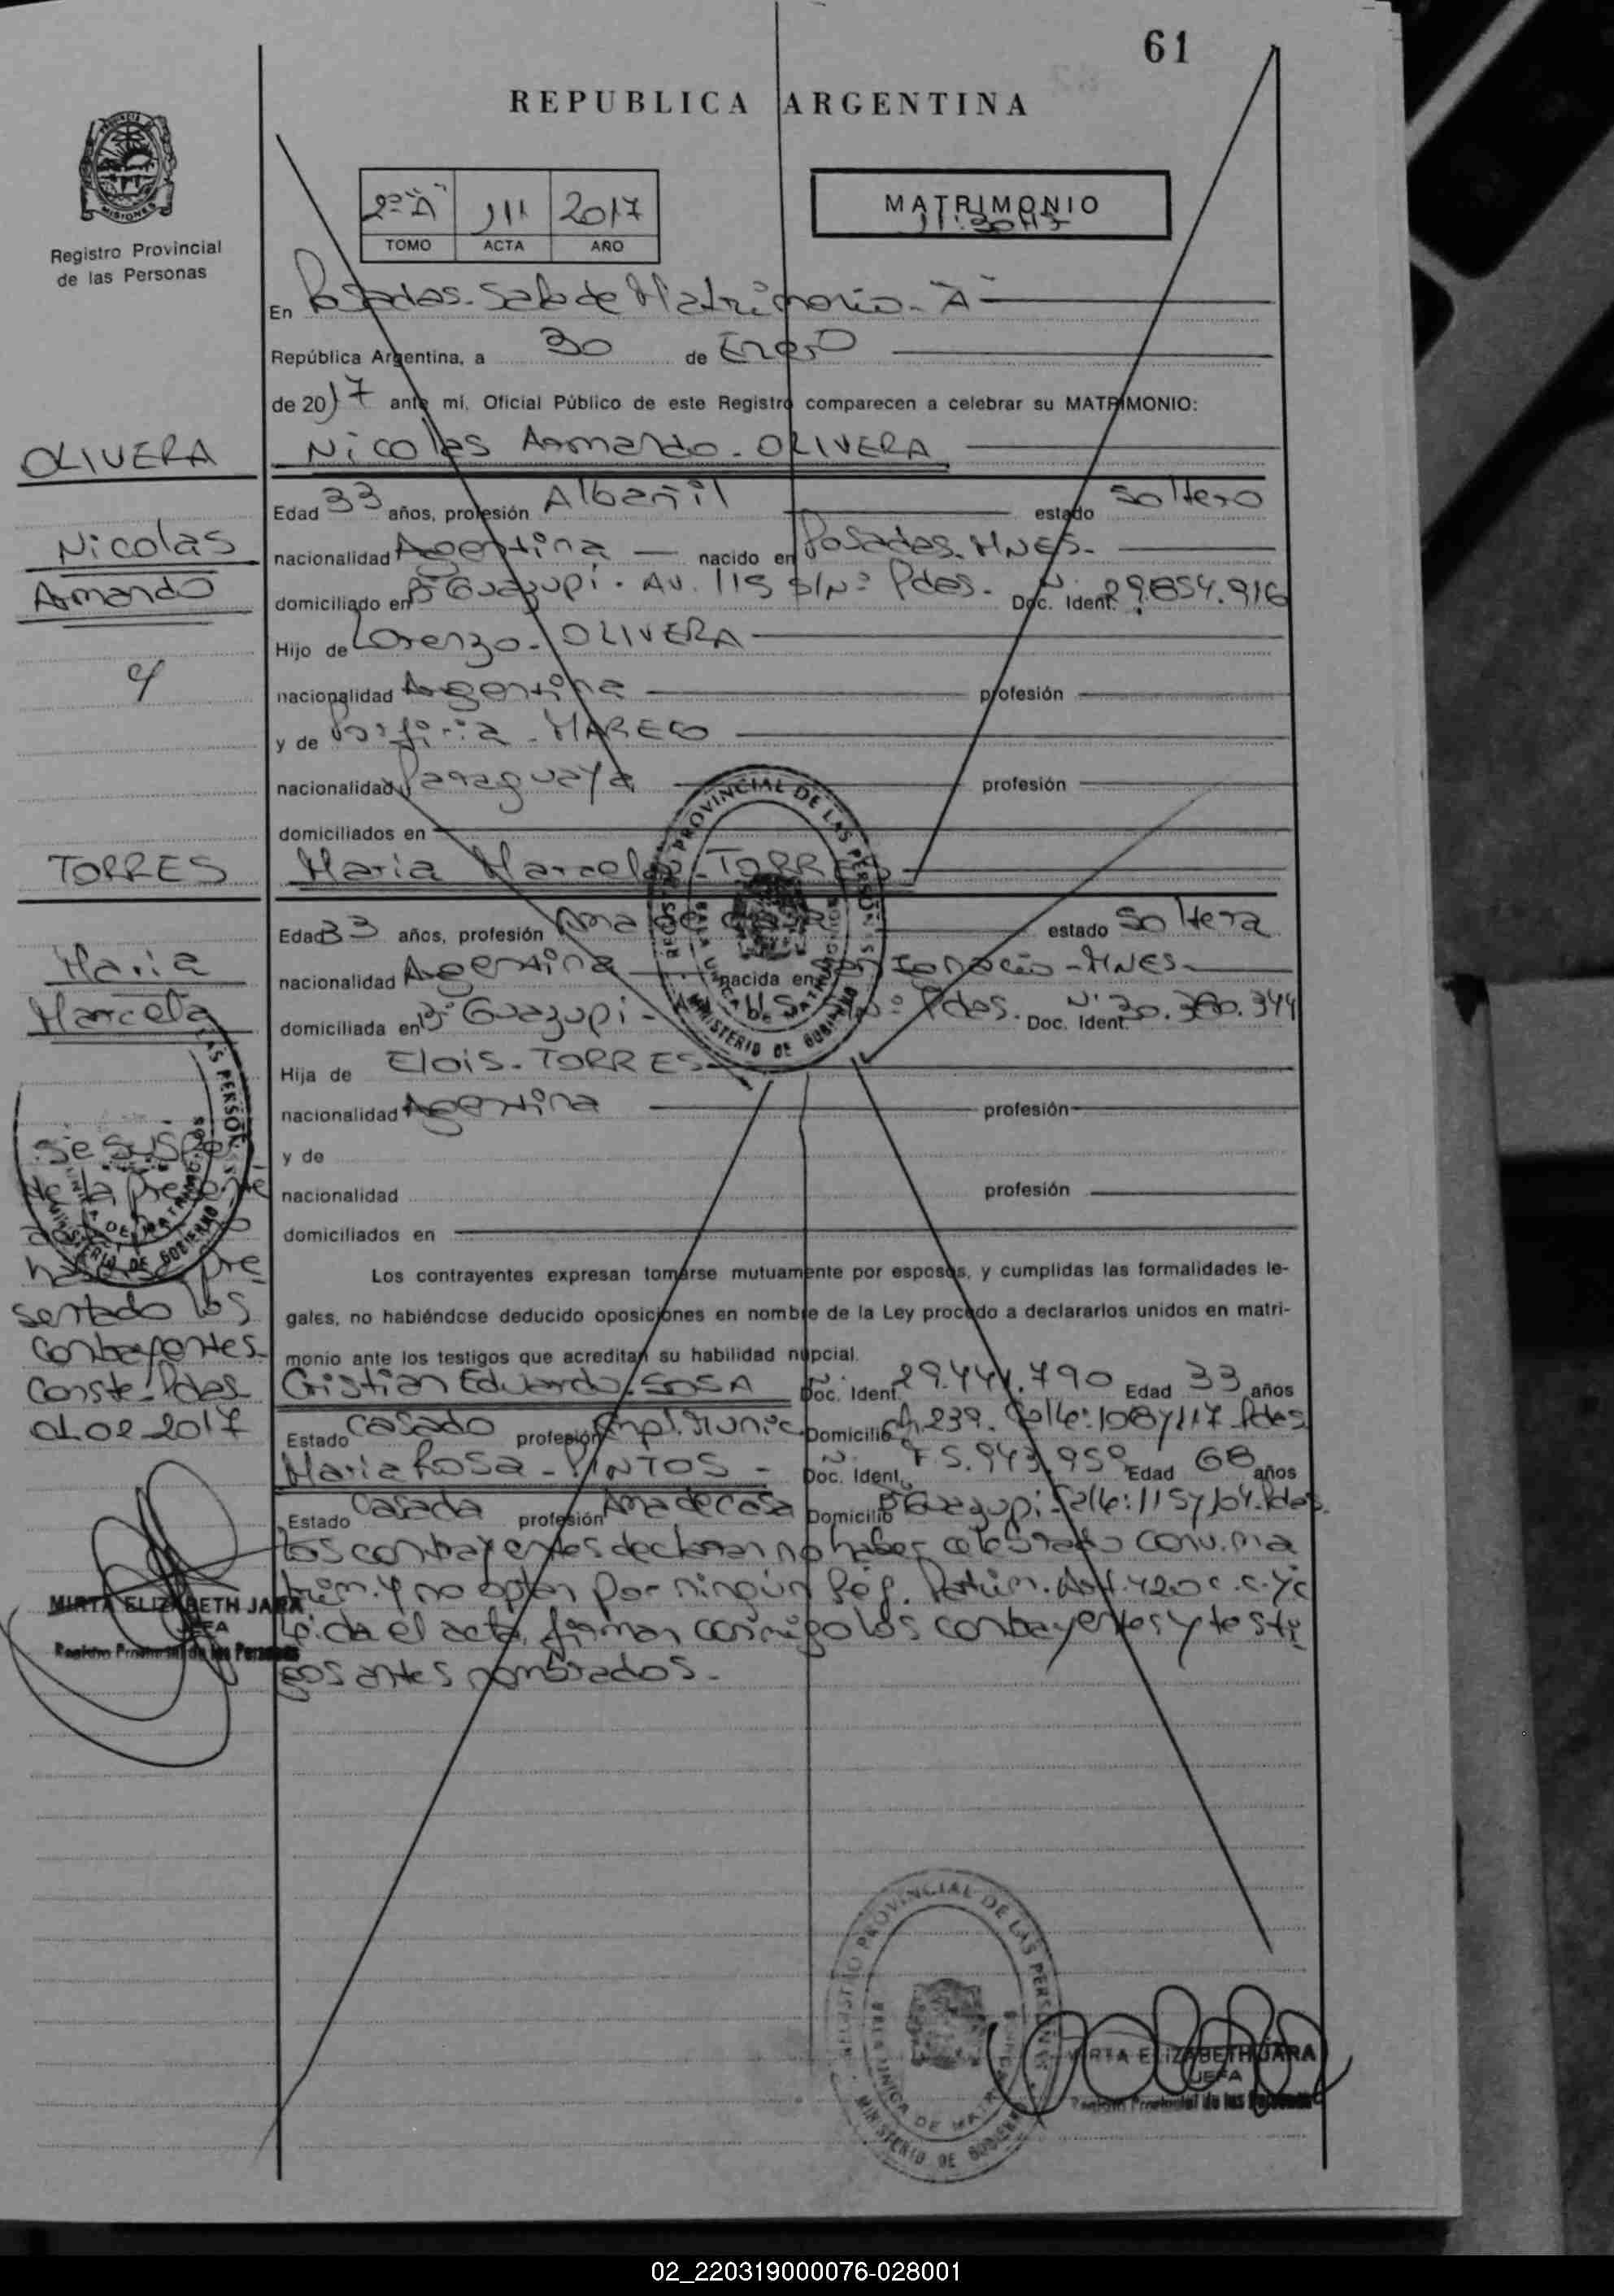 61
REPUBLICA ARGENTINA
MISIONES
Registro Provincial
de las Personas
2º "A" 111 2017
TOMO ACTA AÑO
MATRIMONIO
En Posadas. Sala de Matrimonio - "A"
República Argentina, a 30 de Enero
de 2017 ante mí, Oficial Público de este Registro comparecen a celebrar su MATRIMONIO:
OLIVERA
Nicolas Armando - OLIVERA
Edad 33 años, profesión Albañil estado Soltero
Nicolas
nacionalidad Argentina nacido en Posadas. MNES.
Armando
domiciliado en Bº Guazupi. Av. 115 S/Nº Pdas. Doc. Ident. Nº 29.854.916
Hijo de Lorenzo - OLIVERA
y
nacionalidad Argentina profesión
y de Porfiria - MARECO
nacionalidad Paraguaya profesión
domiciliados en
TORRES
Maria Marcela - TORRES
Edad 33 años, profesión Ama de casa estado Soltera
Maria
nacionalidad Argentina nacida en San Ignacio - MNES
Marcela
domiciliada en Bº Guazupi - Av. 115 S/Nº Pdas. Doc. Ident. Nº 30.380.344
Hija de Elois - TORRES
nacionalidad Argentina profesión
y de
nacionalidad profesión
domiciliados en
REGISTRO PROVINCIAL DE LAS PERSONAS
MINISTERIO DE GOBIERNO
Los contrayentes expresan tomarse mutuamente por esposos, y cumplidas las formalidades le-
gales, no habiéndose deducido oposiciones en nombre de la Ley procedo a declararlos unidos en matri-
monio ante los testigos que acreditan su habilidad nupcial.
Cristian Eduardo. SOSA Doc. Ident. 29.441.790 Edad 33 años
Estado Casado profesión Domicilio Ch. 239. Calle: 108 y 117 Pdas
Maria Rosa - PINTOS - Doc. Ident. F 5.943.959 Edad 68 años
Estado Casada profesión Ama de casa Domicilio Bº Guazupi - Calle: 115 y 104. Pdas.
Los contrayentes declaran no haber celebrado conv. ma
trim. y no optan por ningún Rég. Patrim. Art. 420 c. c. y c
Leida el acta, firman conmigo los contrayentes y testi
gos antes nombrados.
de la presente
haberse pre
sentado los
contrayentes.
Conste. Pdas
01.02.2017
MIRTA ELIZABETH JARA
JEFA
Registro Provincial de las Personas
REGISTRO PROVINCIAL DE LAS PERSONAS
MINISTERIO DE GOBIERNO
MIRTA ELIZABETH JARA
JEFA
Registro Provincial de las Personas
02_220319000076-028001